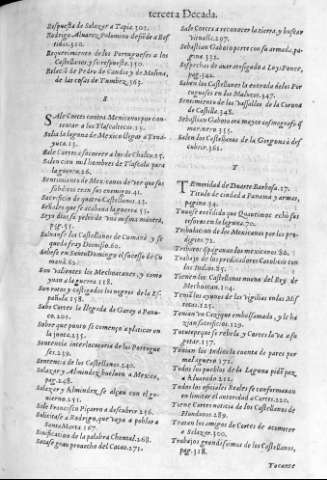 tercera Decada.
Respuesta de Salazar a Tapia. 302.
Rodrigo Alvarez Palomino desiste a Bel
Requerimiento de los Portugueses a los
Castellanos, y su respuesta. 350.
Relaciō de Pedro de Candia y de Molina,
de las cosas de Tumbez. 363.
S
SAle Cortes contra Mexicanos por con-
Sale a la laguna de Mexico llegar a Tenā-
yuca. 13.
Sale Cortes a socorrer a los de Chalco. 25.
Salen cien mil hombres de Tlascala para
la guerra. 26.
Sentimiento de Mexicanos de ver que sus
enemigos. 41.
Sacrificio de quatro Castellanos. 13
la guerra. 53.
Seys dias se peleò de una misma manera,
pag. 55.
Salvanse los Castellanos de Cumanà, y se
queda fray Dionisio. 60.
Sabese en Santo Domingo el sucesso de Cu
manà. 62.
Son valientes los Mechoacanes, y como
yuan a la guerra. 118.
Son rotos y castigados los negros de la Es
pañola. 158.
Sabe Cortes la llegada de Garay a Panu-
co. 201.
Sobre que punto se començò a platicar en
la junta. 235.
Sentencia interlocutoria de los Portugue-
ses. 239.
Sentencia de los Castellanos. 240.
Salazar y Almindez buelven a Mexico,
pag. 248.
Salazar y Almindez, se alçan con el go-
vierno. 251.
Sale Francisco Piçarro a descubrir 256.
Solicitase a Rodrigo que vaya a poblar a
Santa Marta. 267.
Significacion de la palabra Chontal. 268.
Sacase gran provecho del Cacao. 271.
Sale Cortes a reconocer la tierra, y buscar
Sebastian Gaboto parte con su armada. pa-
gina. 332.
Sospechas de aver atosigado a Loys Ponce,
pag. 342.
Saben los Castellanos la entrada de los Por
tugueses en los Malucos. 347.
Sentimiento de los Vassallos de la Corona
de Castilla. 348.
Sebastian Gaboto era mayor cosmografo q̃
marinero. 355.
Salen los Castellanos de la Gorgona a des
cubrir. 361.
T
TEmeridad de Duarte Barbosa. 17.
Titulo de ciudad a Panama y armas,
pagina. 34.
Tuvose noticia que Quatimoc echò sus
tesoros en la laguna. 71.
Tribulacion de los Mexicanos por los pro-
digios. 72.
Trabajo de los predicadores Catolicos con
los Indios. 85.
Tienen los Castellanos nueva del Rey de
Mechoacan. 104.
Tenia los ayunos de las vigilias en los Mis
Tenian un Conjuro embalsamado, y le ha
zian sacrificios. 129.
Tututepeque se rebela, y Cortes la va a so-
gotar. 157.
Tenian los Indios la cuenta de pares por
mal aguero. 171.
Todos los pueblos de la Laguna piden paz,
a Alvarado. 212.
Todos los oficiales Reales se conformaron
en limitar el autoridad a Cortes. 220.
Tiene Cortes noticia de los Castellanos de
Honduras. 289.
Tratan los amigos de Cortes de acometer
a Salazar. 300.
Trabajos grandissimos de los Castellanos,
pag. 318.
Tocanse